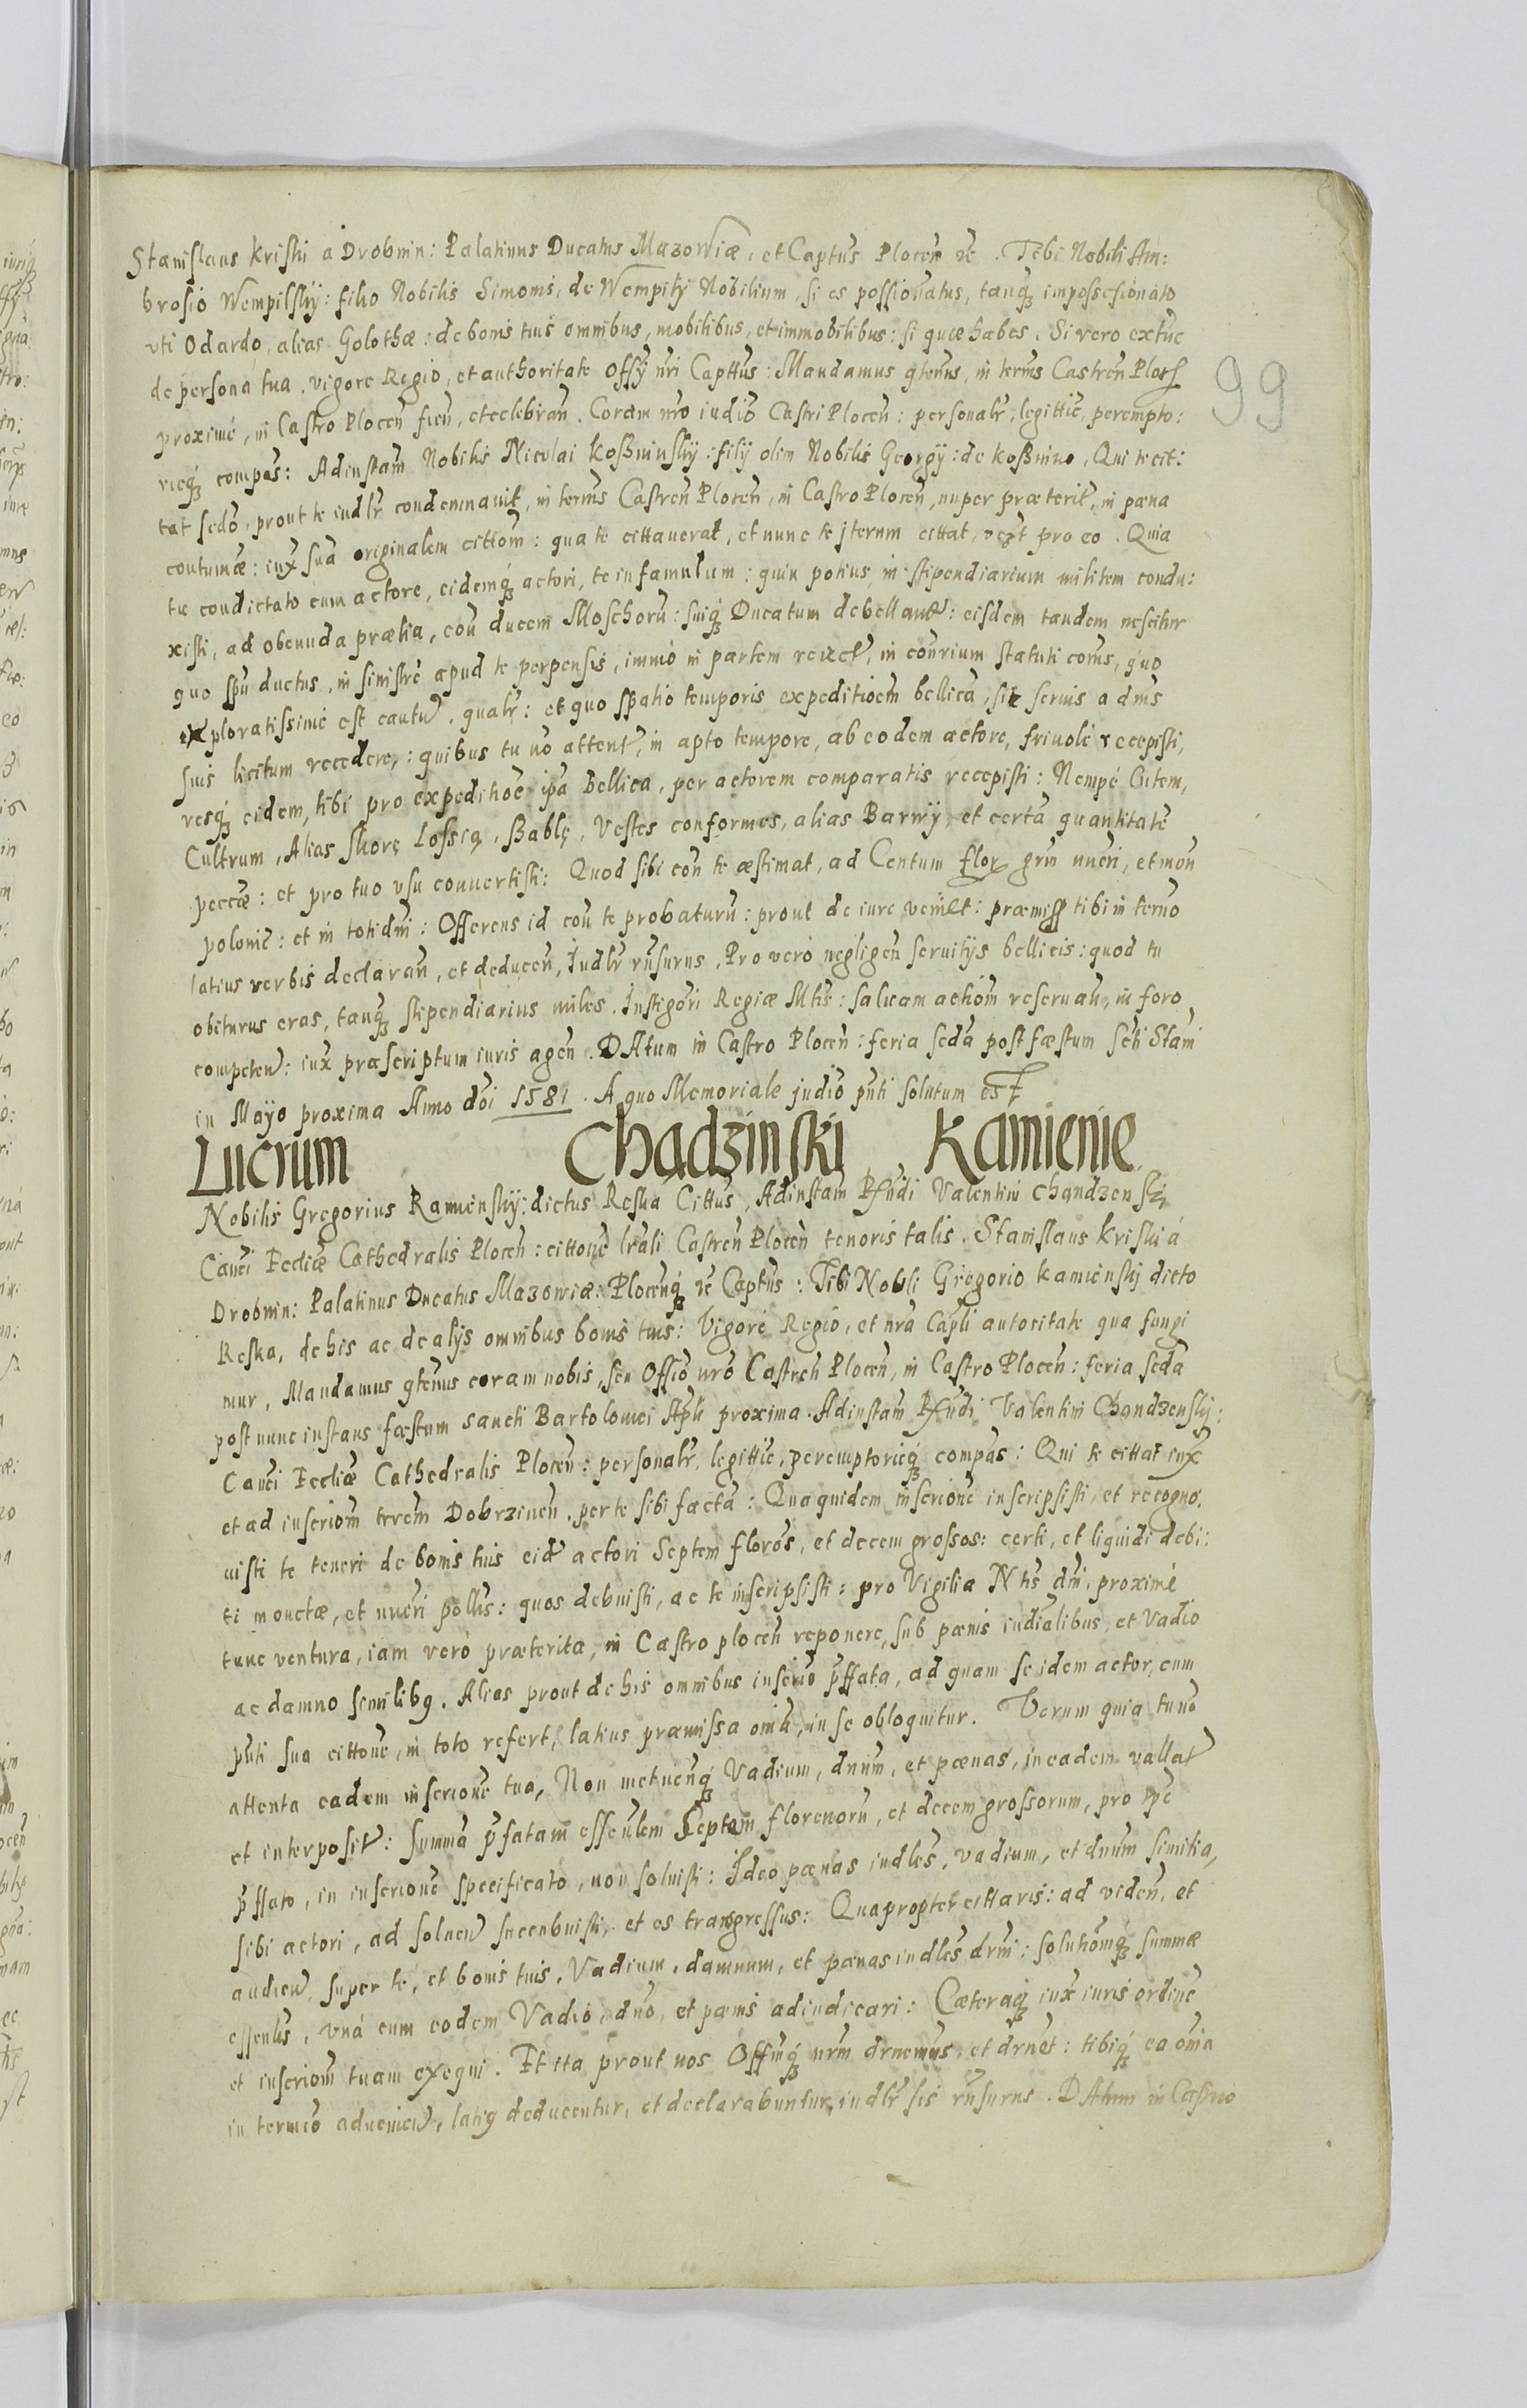 Stanislaus Kriski a Drobnin: Palatinus Ducatus Mazowiæ, et Captūs Plocen̄ rc̄. Tibi Nobili Am:
brosio Wempilsky: filio Nobilis Simonis, de Wempily Nobilium, si es possionatus, tanq̃ impossesionato
vti Odardo, alias Golothæ: de bonis tuis omnibus, mobilibus, et immobilibus: si quæ habes. Si vero extūc
de persona tua. vigore Regio, et authoritate Offÿ nr̄i Capttūs: Mandamus q̄tenus, in termīs Castren̄ Plocen̄
99
proximé, in Castro Plocen̄ fien̄, et celebran̄. Coram nr̄o iudiō Castri Plocen̄: personalr̄, legittīe, perempto:
rieq̃ compās: Ad instam̄ Nobilis Nicolai Koßminsky: filÿ olim Nobilis Georgÿ: de Koßmino, Qui te cit:
tat sedō, prout te iudlr̄ condemnauit, in termīs Castren̄ Plocen̄, in Castro Plocen̄, nuper præterit̄, in pæna
contumǣ: iux̄ suā originalem cittōm: qua te cittauerat, et nunc te jterum cittat, vcz̄t pro eo. Quia
tu condictato cum actore, eidemq̃ actori, te in famulum: quin potius in stipendiarium militem condu:
xisti, ad obeunda prælia, cōn ducem Moschorū: suiq̃ Ducatum debellan̄: eisdem tandem nescitur
quo spū ductus, in sinistré apud te perpensis, immó in partem reiect̄, in cōnrium statuti corn̄s, quo
exploratissime est cautū. qualr̄: et quo spatio temporis expeditiōem bellicā, sit seruis a dn̄is
suis licitum recedere,: quibus tu nō attent̄, in apto tempore, ab eodem actore, friuolé recepisti,
resq̃ eidem, tibi pro expeditiōe ipā bellica, per actorem comparatis recepisti: Nempé Cutem,
Cultrum, Alias Skorę Lossią, Szablę, Vestes conformes, alias Barwÿ, et certā quantitatē
peccǣ: et pro tuo vsu conuertisti: Quod sibi cōn te æstimat, ad Centum flor̄ gr̄m nūeri, et mon̄
poloniē: et in totidn̄i: Offerens id cōn te probaturū: prout de iure veniet: præmiss̄ tibi in termō
latius verbis declaran̄, et deducen̄, Judlr̄ rn̄surus. Pro veró negligen̄ seruitÿs bellicis: quod tu
obiturus eras, tanq̃ stipendiarius miles. Instigōri Regiæ Mtīs: saluam actiōm reseruan̄, in foro
competen̄: iux̄ præscriptum iuris agen̄. DAtum in Castro Plocen̄: feria sedā post fæstum Scti Stani
in Maÿo proxima Anno dōi 1581. A quo Memoriale judiō pn̄ti solutum est
Lucrum Chadzinski Kamienie
Nobilis Gregorius Kamiensky: dictus Reska Cittūs, Ad instam̄ Rn̄di Valentini Chandzensky
Canci Ecclīæ Cathedralis Plocen̄: cittone lr̄ali Castren̄ Plocen̄ tenoris talis. Stanislaus Kriski á
Drobnin: Palatinus Ducatus Mazowiæ: Plocenq̃ rc̄ Captūs: Tibi Nobili Gregorio Kamiensky dicto
Reska, de his ac de alÿs omnibus bonis tuis: Vigoré Regió, et nr̄a Capli autoritate qua fungi
mur, Mandamus q̄tenus coram nobis, seu Offiō nr̄ō Castren̄ Plocen̄, in Castro Plocen̄: feria sedā
post nunc instans fæstum sancti Bartolomei Apli proxima. Ad instam̄ Rn̄di Valentini Chandzensky:
Canci Ecclīæ Cathedralis Plocen̄: personalr̄, legittīe, peremptorieq̃ compās: Qui te cittat iux̄
et ad inscriōm terrēm Dobrzinen̄, per te sibi factā: Qua quidem inscrione inscripsisti, et recogno:
uisti te teneri de bonis tuis eid̄ actori Septem florōs, et decem grossos: certi, et liquidi debi:
ti monetæ, et nūeri pollīs: quos debuisti, ac te inscripsisti: pro Vigilia Ntīs dn̄i, proximé
tunc ventura, iam veró præterita, in Castro plocen̄ reponere, sub pænis iudialibus, et Vadio
ac damno similibg. Alias prout de his omnibus inscrio p̄ffata, ad quam se idem actor, cum
pn̄ti sua cittone, in toto refert, latius præmissa oīa, in se obloquitur. Verum quia tu nō
attenta eadem inscrione tua, Non metuenq̃ Vadium, dn̄um, et pænas, in eadem vallat̄
et interposit̄: Summā p̄fatam esseūlem Septem florenorū, et decem grossorum, pro tp̄e
p̄ffato, in inscrione specificato, non soluisti: Ideo pænas iudles, vadium, et dn̄um similia,
sibi actori, ad soluen̄ sucenbuisti, et es transgressus: Quapropter cittaris: ad viden̄, et
audien̄, super te, et bonis tuis, Vadium, damnum, et pænas iudles drn̄i: solutiōmq̃ summæ
essenlis, vná cum eodem Vadió, dn̄o, et pænis adiudicari: Cæteraq̃ iux̄ iuris ordinē
et inscriōm tuam exequi. Et ita prout nos Offmq̃ nr̄m drnemus, et drnet: tibiq̃ ea omīa
in termīo aduenien̄, latig deducentur, et declarabuntur, iudlr̄ sis rn̄surus. DAtum in Castro